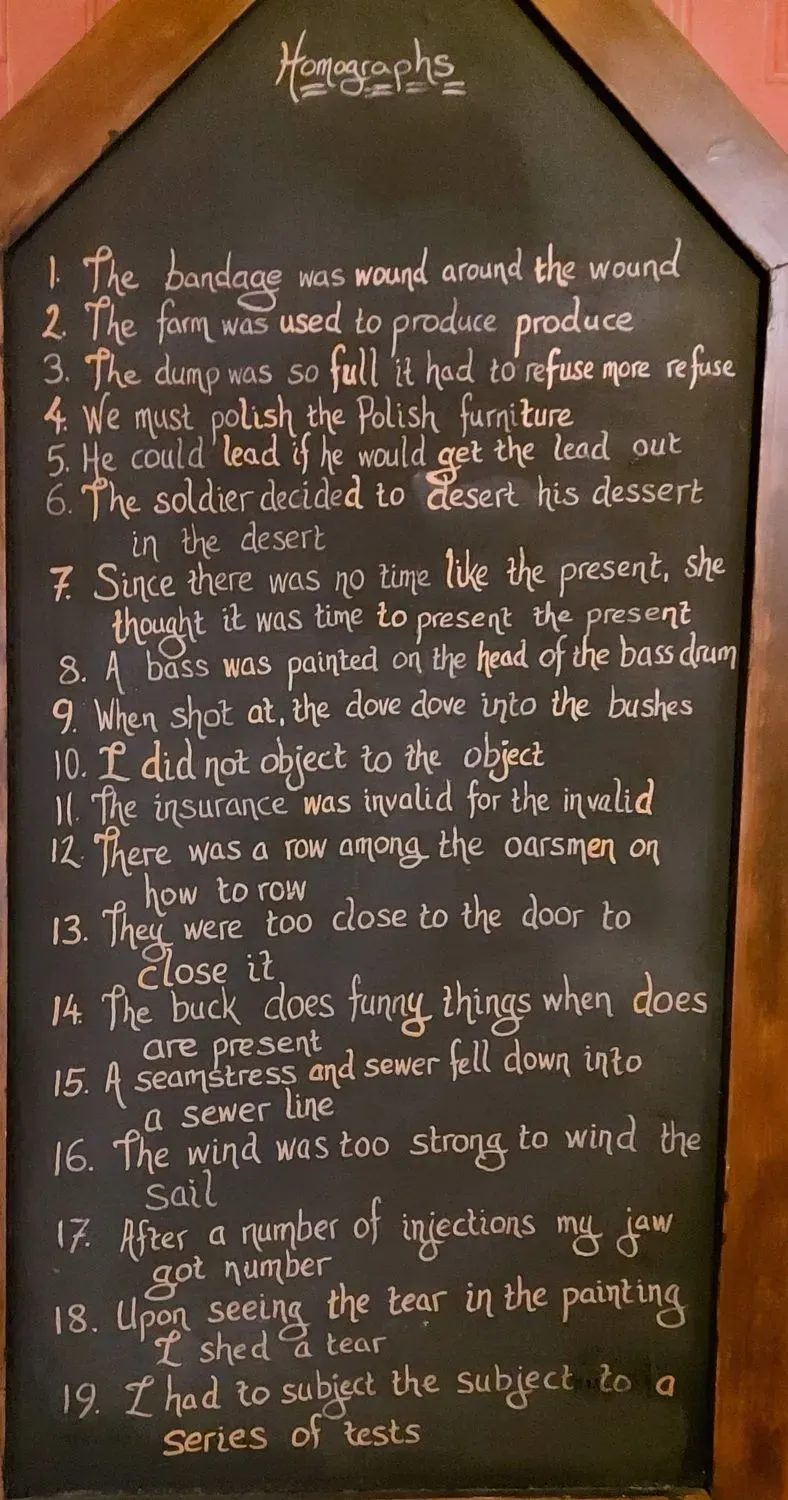 Homographs
1. The bandage was wound around the wound
2. The farm was used to produce produce
3. The dump was so full it had to refuse more refuse
4. We must polish the Polish furniture
5. He could lead if he would get the lead out
6. The soldier decided to desert his dessert
in the desert
7. Since there was no time like the present, she
thought it was time to present the present
8. A bass was painted on the head of the bass drum
9. When shot at, the dove dove into the bushes
10. I did not object to the object
11. The insurance was invalid for the invalid
12. There was a row among the oarsmen on
how to row
13. They were too close to the door to
close it
14. The buck does funny things when does
are present
15. A seamstress and sewer fell down into
a sewer line
16. The wind was too strong to wind the
sail
17. After a number of injections my jaw
got number
18. Upon seeing the tear in the painting
I shed a tear
19. I had to subject the subject to a
series of tests